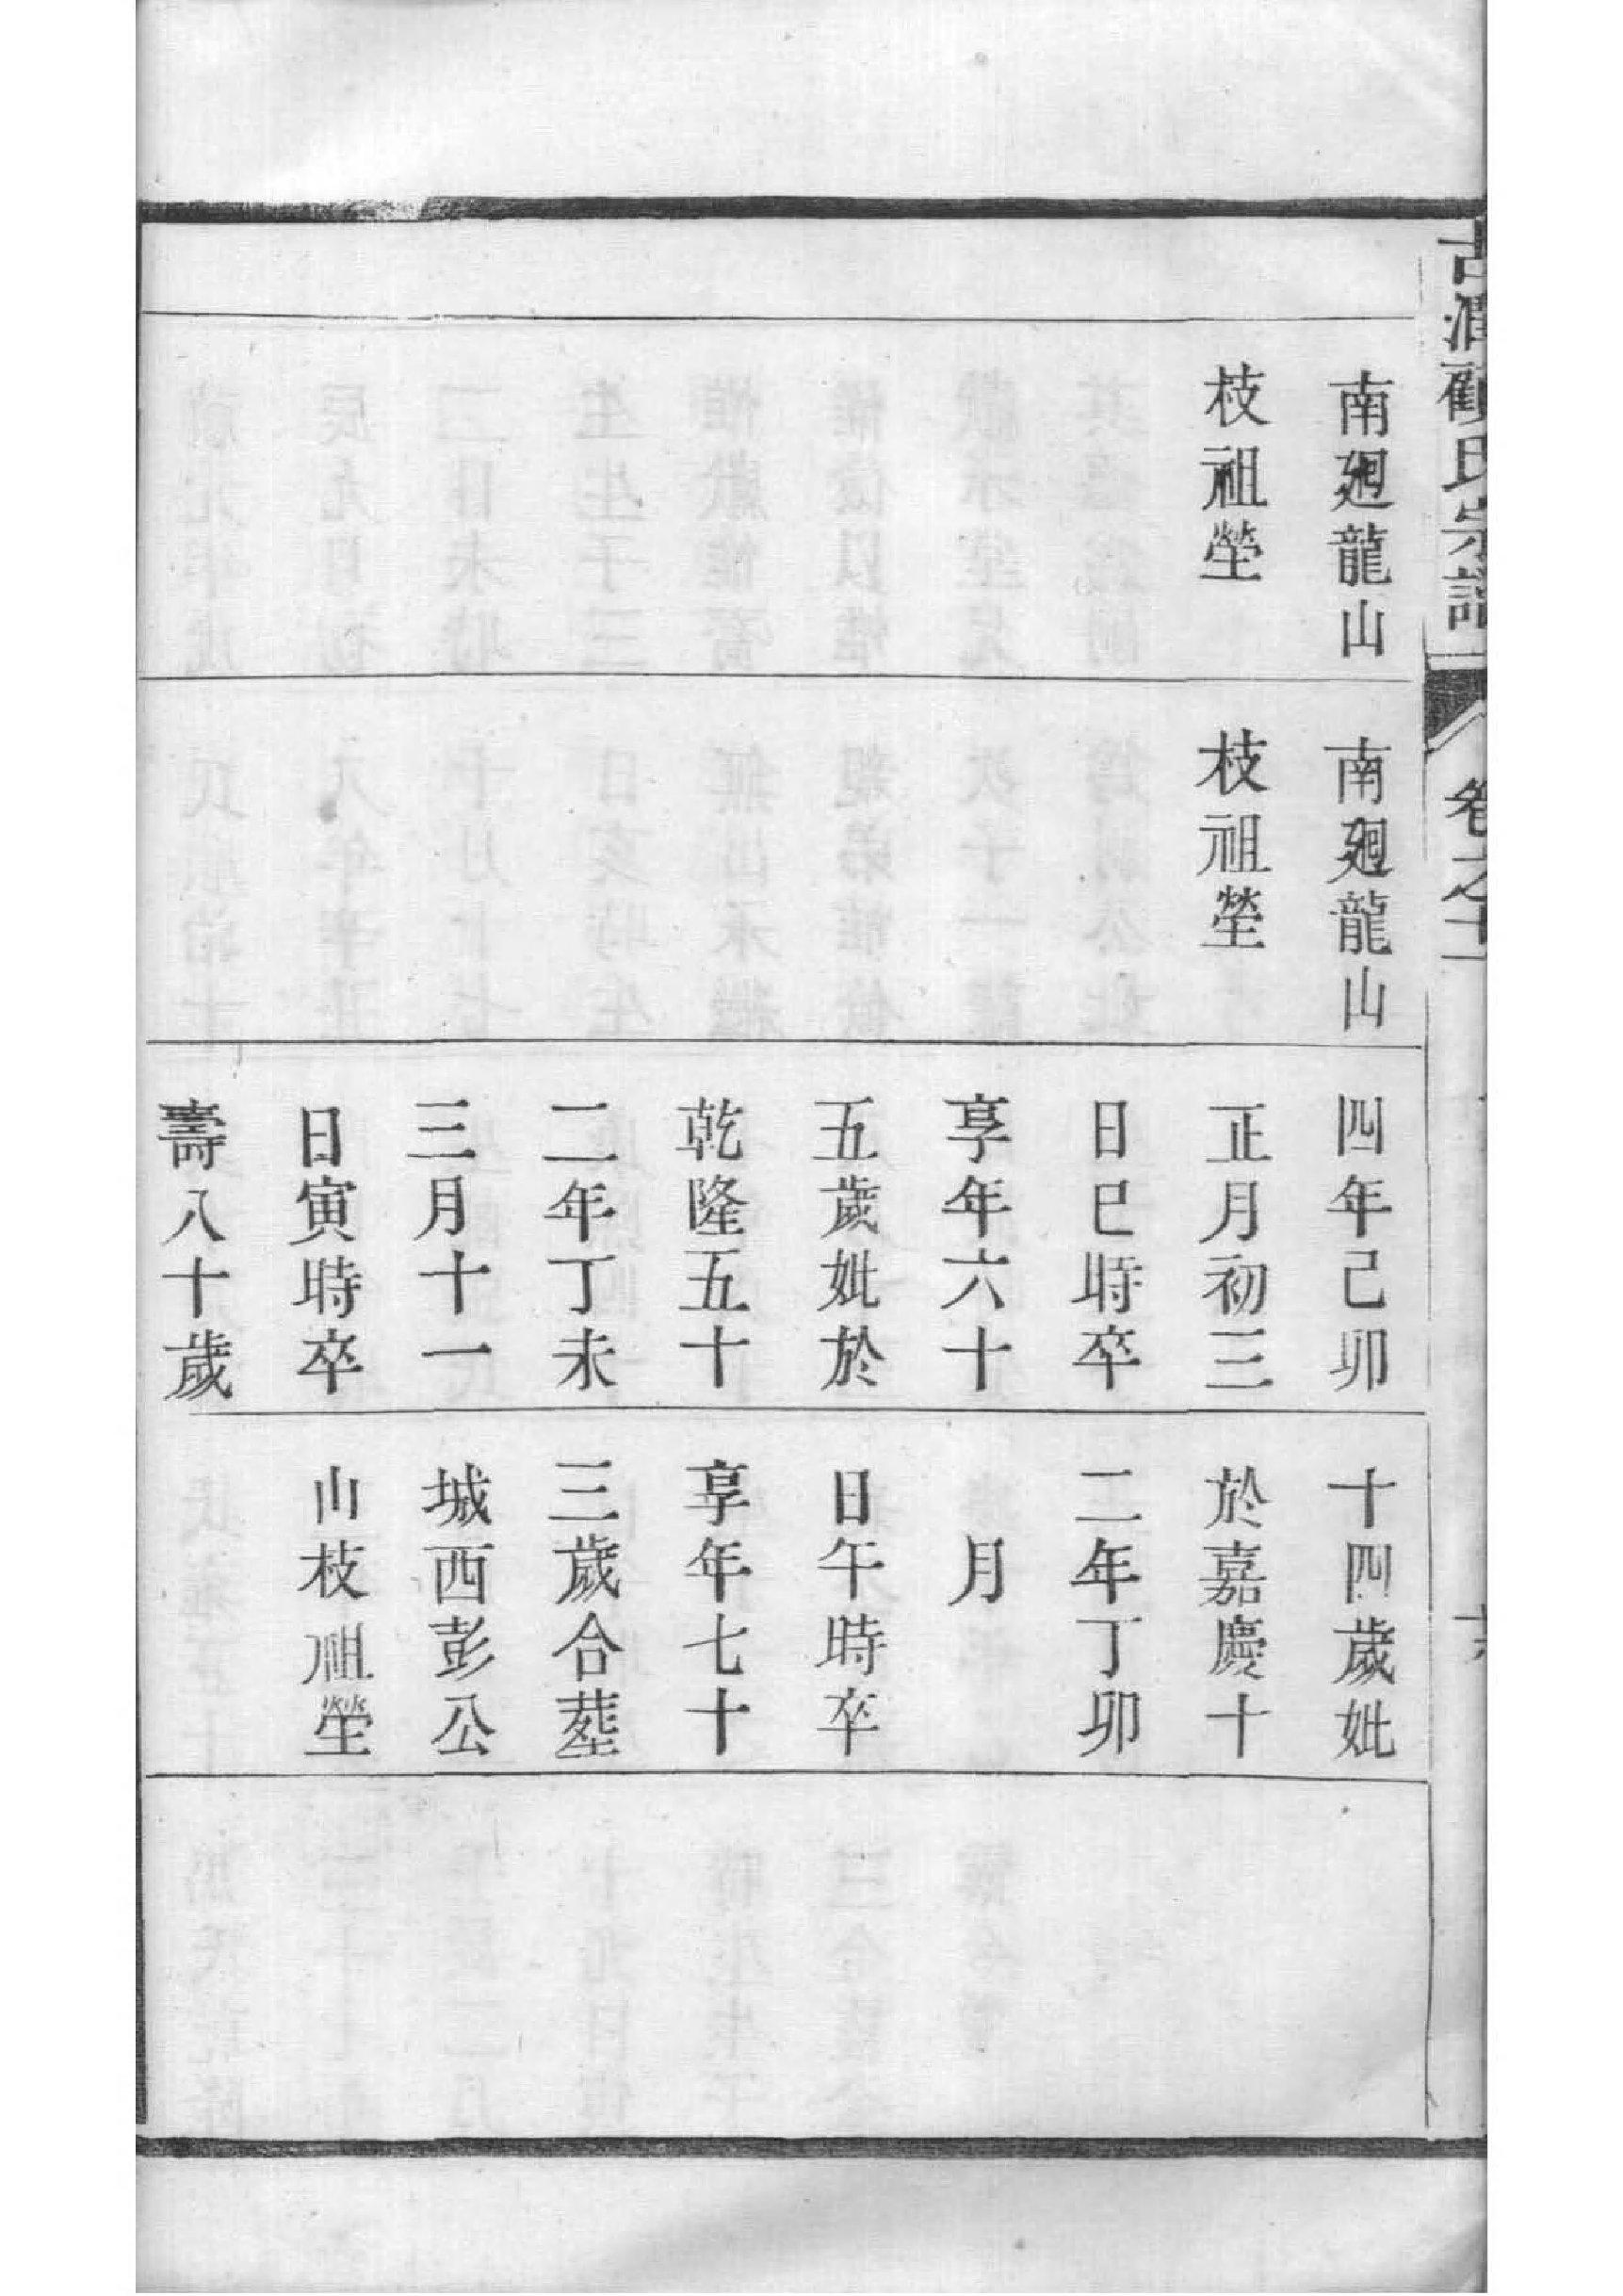 古潤顧氏宗譜 卷之十二 十六
南廻龍山
枝祖塋
南廻龍山
枝祖塋
四年己卯
正月初三
日巳時卒
享年六十
五歲妣於
乾隆五十
二年丁未
三月十一
日寅時卒
壽八十歲
十四歲妣
於嘉慶十
二年丁卯
月
日午時卒
享年七十
三歲合塟
城西彭公
山枝祖塋